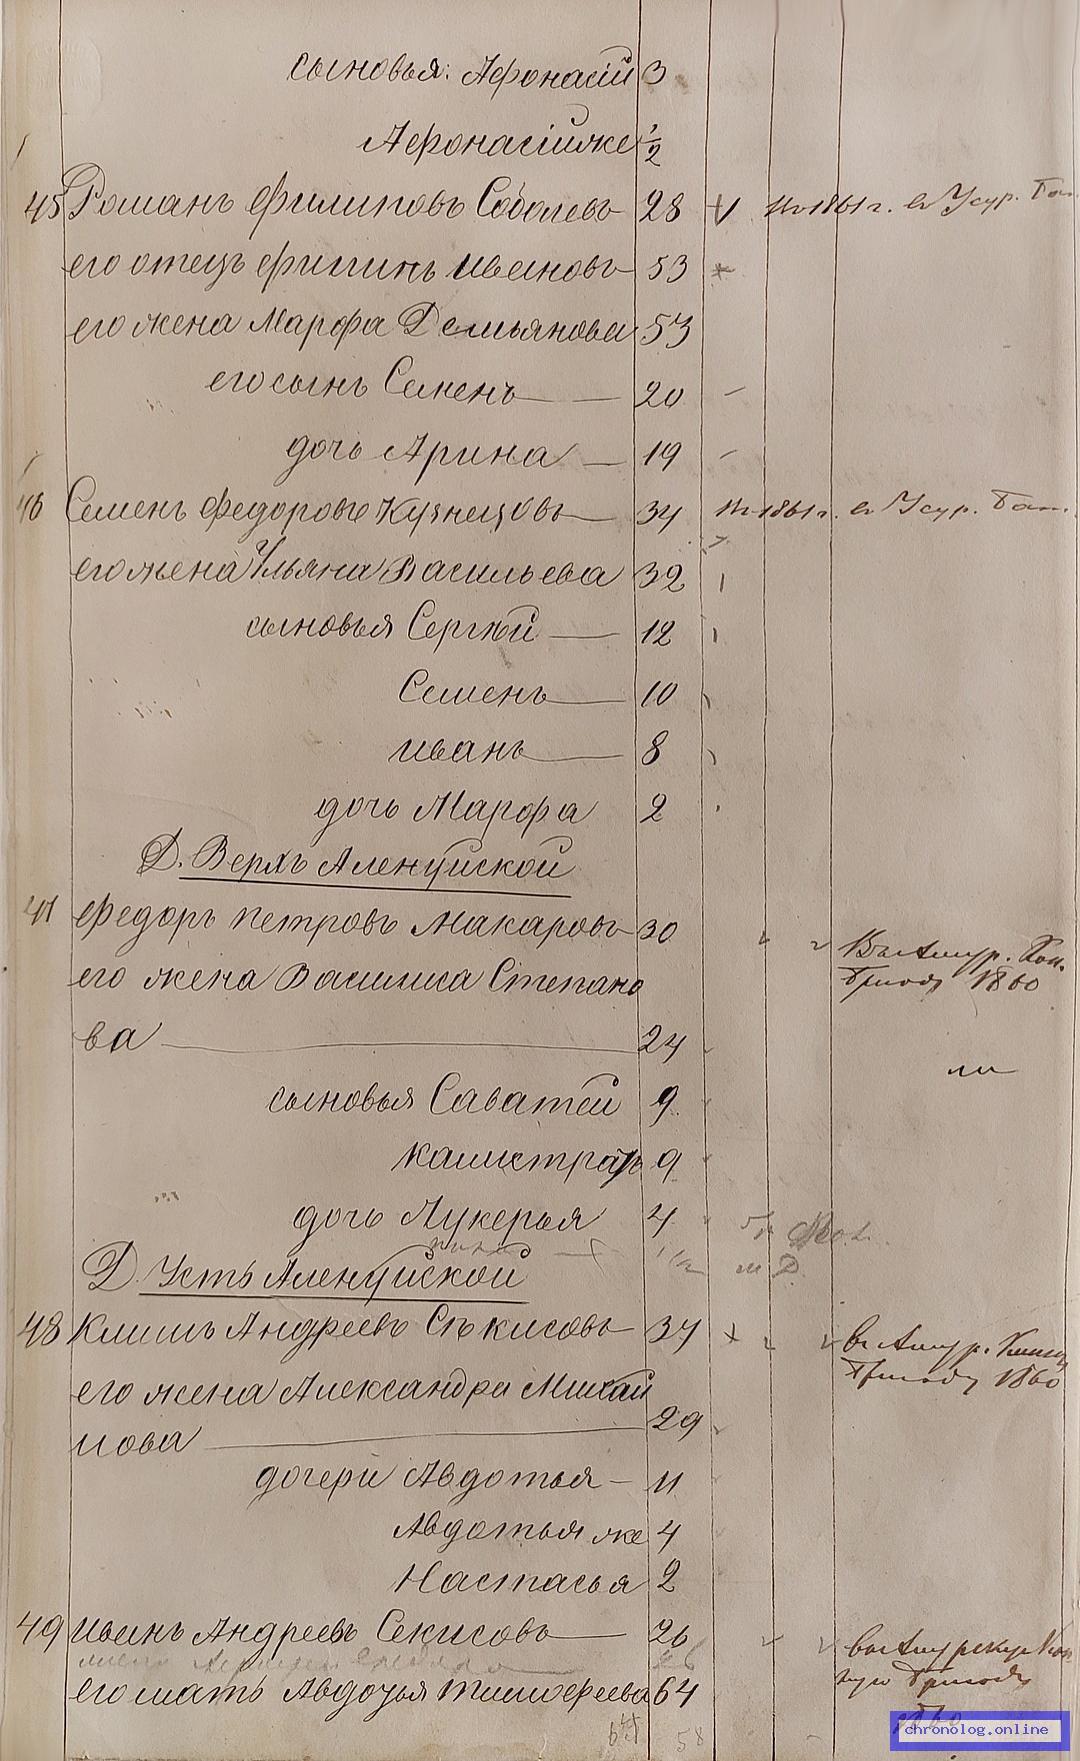 сыновья: Афонасій 3
Афонасій же 1/2
45 Романъ Филиповъ Соболевъ 28 Въ 1861 г. въ Усур. Бат.
его отецъ Филипъ Ивановъ 53
его жена Марфа Демьянова 53
его сынъ Семенъ 20
дочь Арина 19
46 Семенъ Федоровъ Кузнецовъ 34 Въ 1861 г. въ Усур. Бат.
его жена Ульяна Васильева 32
сыновья Сергѣй 12
Семенъ 10
Иванъ 8
дочь Марфа 2
Д. Верхъ Аленуйской
47 Федоръ Петровъ Макаровъ 30 Въ Амур. Кон.
его жена Василиса Степано бригаду 1860
ва 24
сыновья Саватей 9
Калистратъ 9
дочь Лукерья 4
Д. Усть Аленуйской
48 Климъ Андреевъ Сѣкисовъ 37 въ Амур. Конную
бригаду 1860
его жена Александра Михай
лова 29
дочери Авдотья 11
Авдотья же 4
Настасья 2
49 Иванъ Андреевъ Секисовъ 26 въ Амурскую Кон
ную бригаду
его мать Авдотья Тимофеева 64
1860
58
chronolog.online